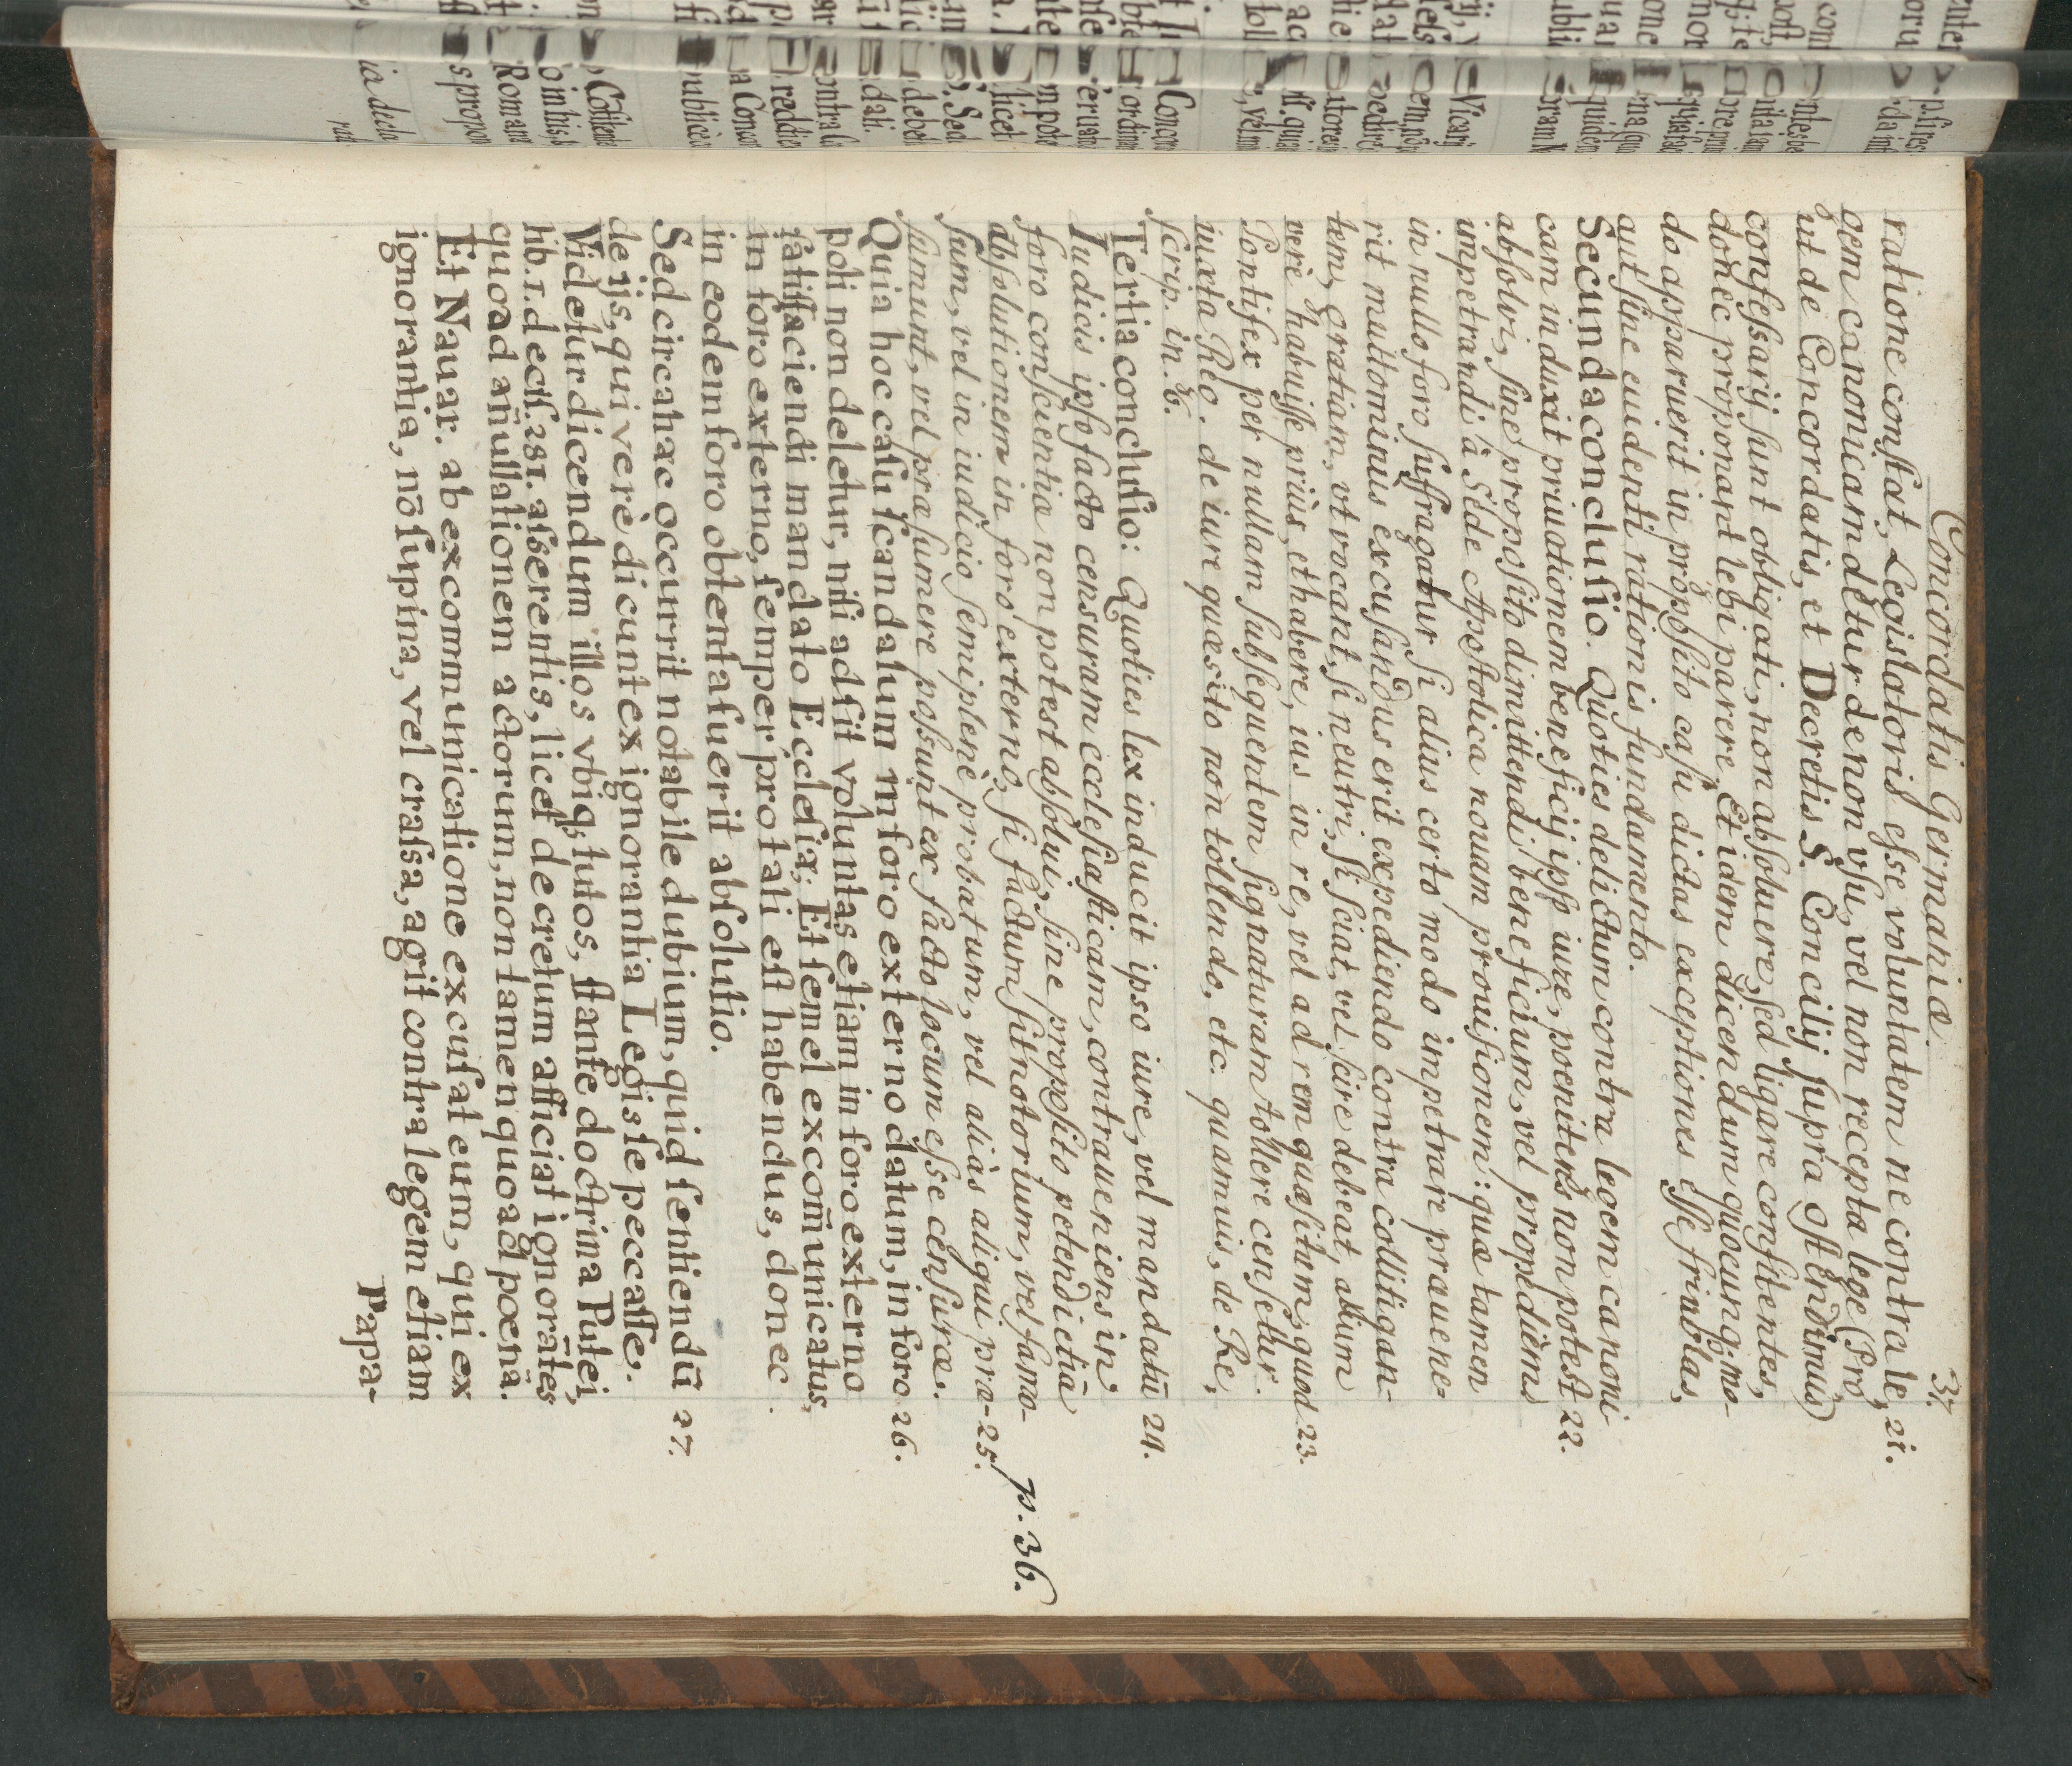 Concordatis Germaniæ 37.
ratione constat, Legislatoris esse voluntatem ne contra le, 21.
gem canonicam detur de non vsu, vel non recepta lege (Pro,
ut de Concordatis, et Decretis S. Concilij supra ostendimus)
confessarij sunt obligati, non absoluere, sed ligare confitentes,
donec proponant sebi parere, Et idem dicendum quocunq; mo-
do apparuerit in proposito casu dictas exceptiones esse friuolas,
aut sine euidenti rationis fundamento.
Secunda conclusio. Quoties delictum contra legem canoni
cam induxit priuationem beneficij ipso iure, poenitens non potest 22.
absolvi, sine proposito dimittendi beneficium, vel propediem
impetrandi à Sede Apostolica nouam prouisionem: quæ tamen
in nullo foro suffragatur si alius certo modo impetrare præuene-
rit multominus excusandus erit expediendo contra collitigan-
tem, gratiam, vt vocant, si neutri, si sciat, vel scire debeat, alium
verè habuisse priùs, et habere, ius in re, vel ad rem quæsitum, quod 23.
Pontifex per nullam subsequentem signaturam tollere censetur.
iuxta Reg. de iure quæsito non tollendo, etc. quamuis, de Re,
scrip. in. 6.
Tertia conclusio: Quoties lex inducit ipso iure, vel mandatū 24.
Iudicis ipso facto censuram ecclesiasticam, contraueniens in
foro conscientiæ non potest absolui, sine proposito petendi etiā
absolutionem in foro externo, si factum sit notorium, vel famo- p. 36.
sum, vel in iudicio semiplenè probatum, vel aliàs aliqui præ- 25.
sumunt, vel præsumere possunt ex facto locum esse censuræ.
Quia hoc casu scandalum in foro externo datum, in foro 26.
poli non deletur, nisi adsit voluntas etiam in foro externo
satisfaciendi mandato Ecclesiæ; Et semel excom̄unicatus,
in foro externo, semper pro tali est habendus, donec
in eodem foro obtenta fuerit absolutio.
Sed circa hæc occurrit notabile dubium, quid sentiendū 27.
de ijs, qui verè dicunt ex ignorantia Legis se peccasse.
Videtur dicendum illos vbiq; tutos, stante doctrina Putei,
lib. 1. decis. 281. asserentis, licet decretum afficiat ignorātes
quoad an̄ullationem actorum, non tamen quoad poenā.
Et Nauar. ab excommunicatione excusat eum, qui ex
ignorantia, nō supina, vel crassa, agit contra legem etiam
Papa-